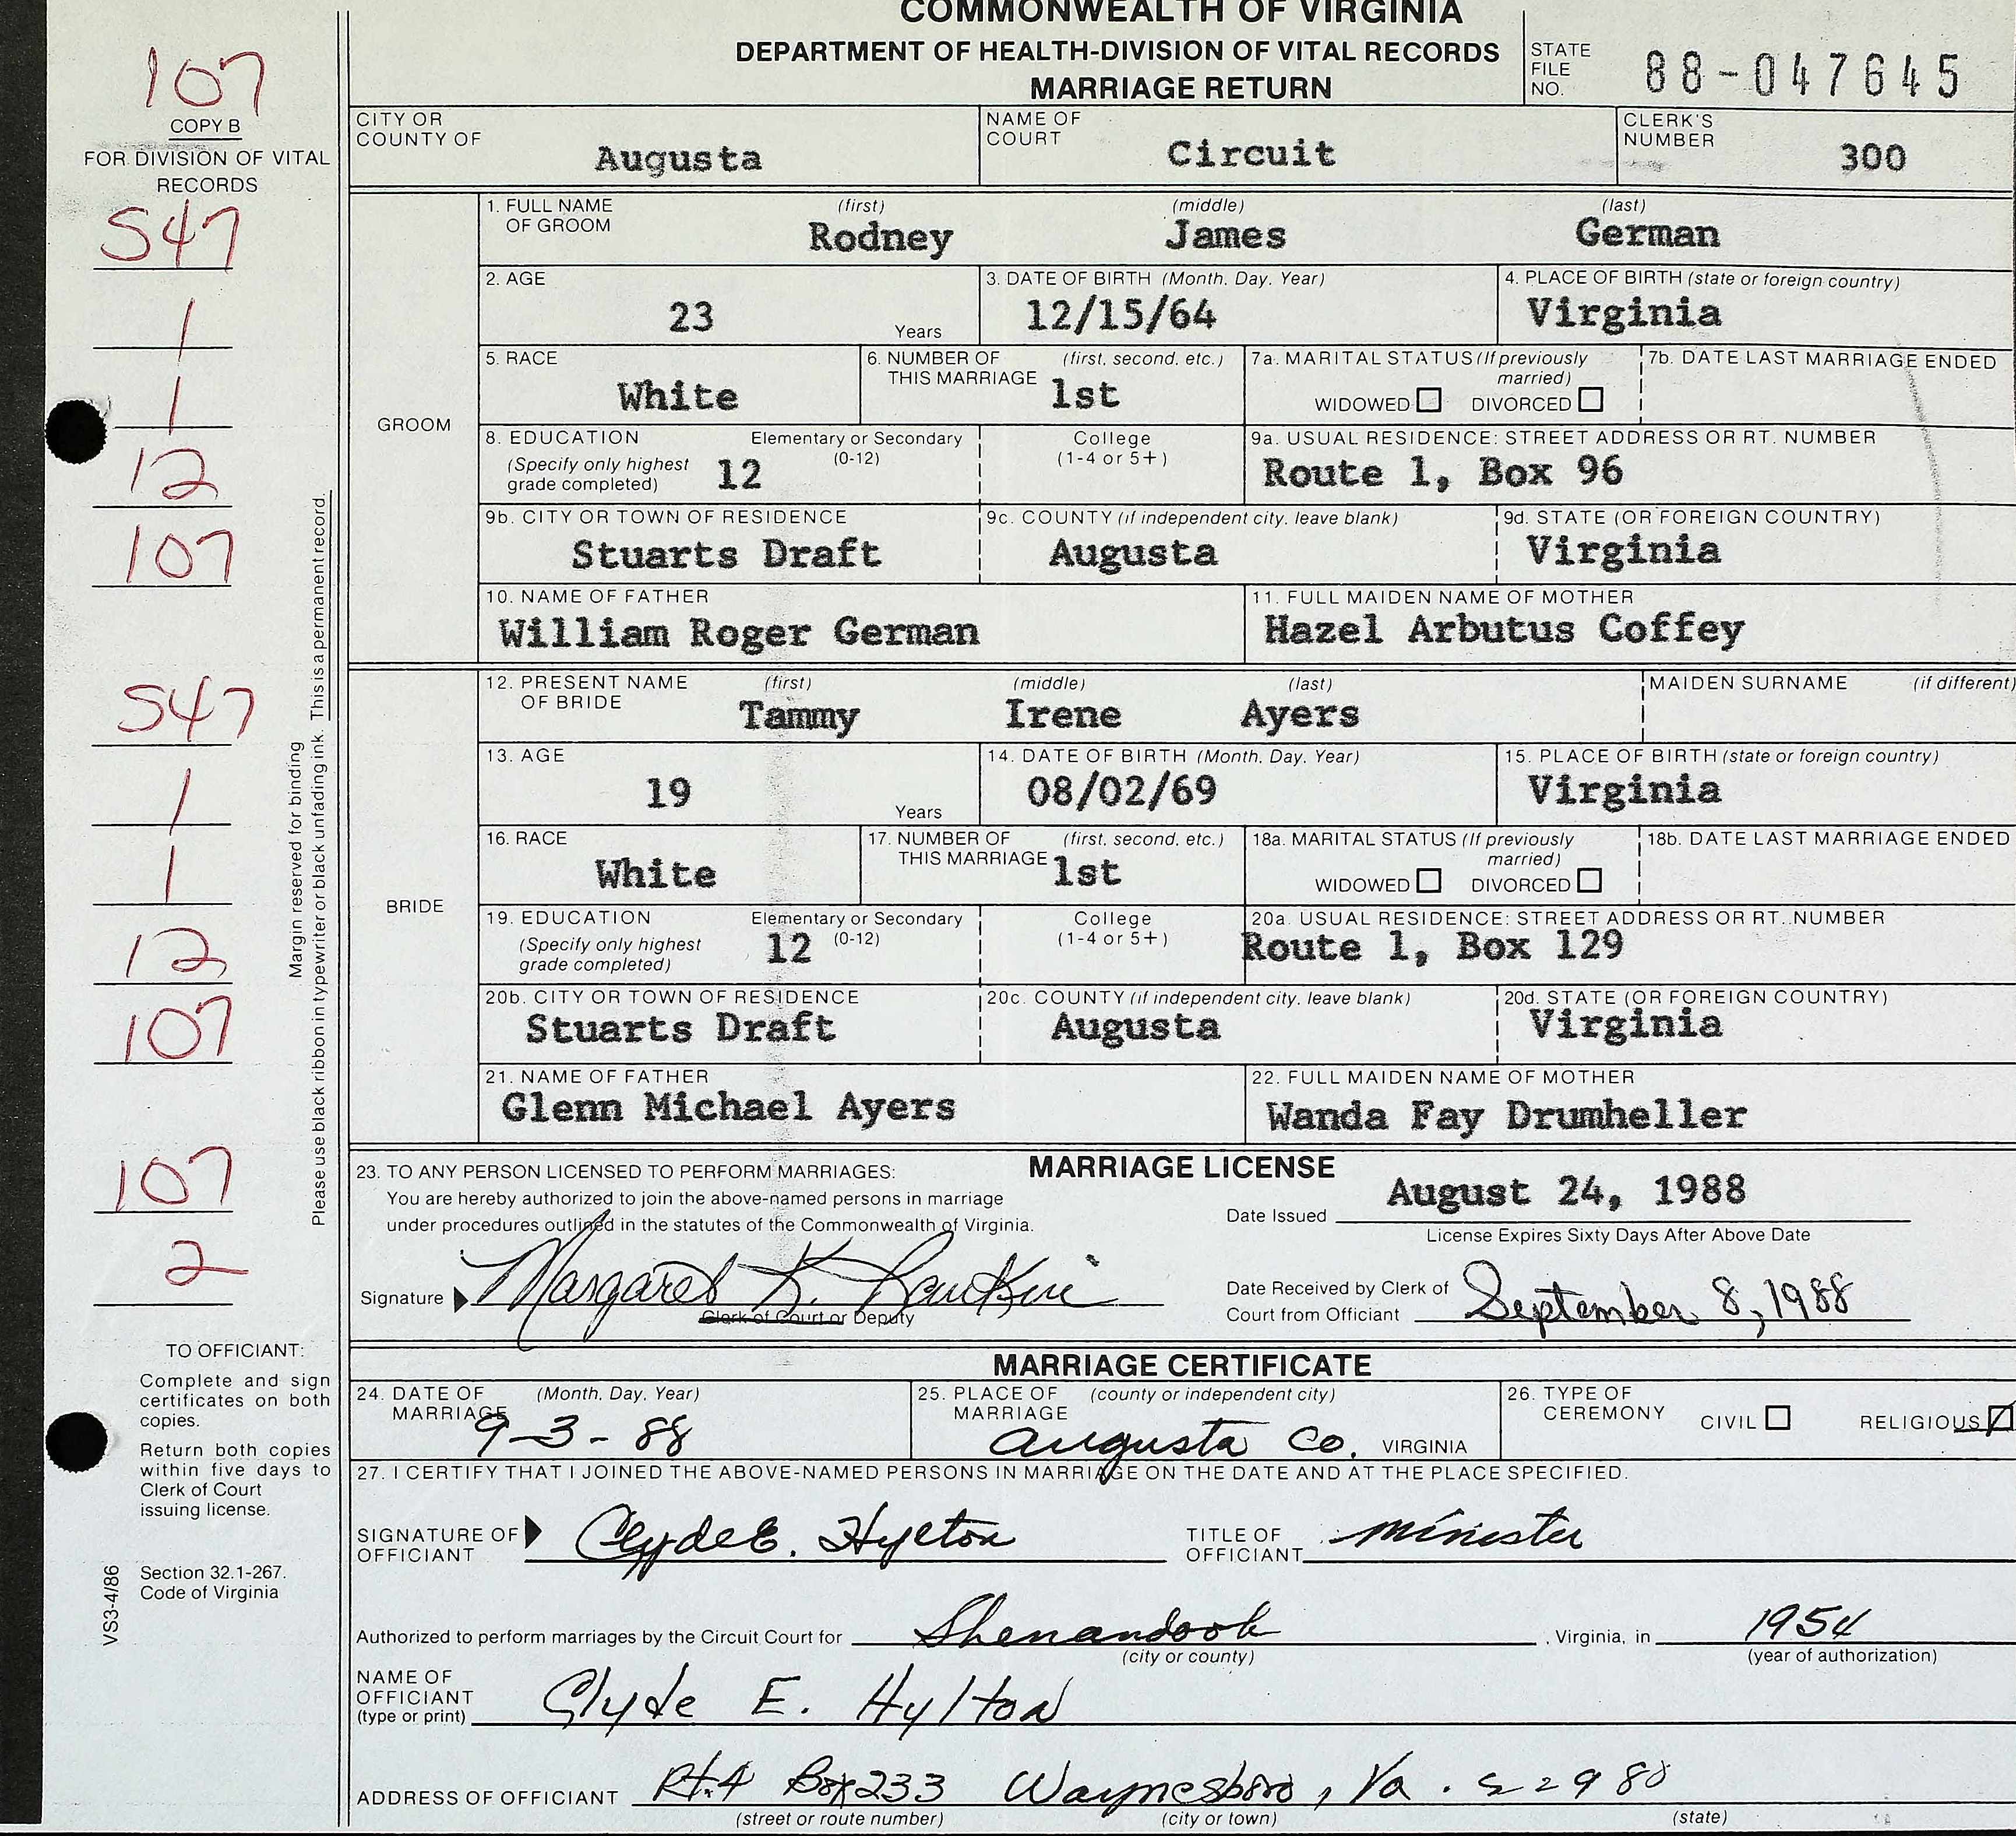 COMMONWEALTH OF VIRGINIA
DEPARTMENT OF HEALTH-DIVISION OF VITAL RECORDS
MARRIAGE RETURN
STATE FILE NO. 88-047645
107
COPY B
FOR DIVISION OF VITAL RECORDS
547
1
1
12
107
547
1
1
12
107
107
2
Margin reserved for binding
Please use black ribbon in typewriter or black unfading ink. This is a permanent record.
TO OFFICIANT:
Complete and sign
certificates on both
copies.
Return both copies
within five days to
Clerk of Court
issuing license.
Section 32.1-267.
Code of Virginia
VS3-4/86
CITY OR COUNTY OF Augusta
NAME OF COURT Circuit
CLERK'S NUMBER 300
GROOM
1. FULL NAME OF GROOM (first) Rodney (middle) James (last) German
2. AGE 23 Years
3. DATE OF BIRTH (Month, Day, Year) 12/15/64
4. PLACE OF BIRTH (state or foreign country) Virginia
5. RACE White
6. NUMBER OF THIS MARRIAGE (first, second, etc.) 1st
7a. MARITAL STATUS (If previously married) WIDOWED DIVORCED
7b. DATE LAST MARRIAGE ENDED
8. EDUCATION (Specify only highest grade completed) Elementary or Secondary (0-12) 12 College (1-4 or 5+)
9a. USUAL RESIDENCE: STREET ADDRESS OR RT. NUMBER Route 1, Box 96
9b. CITY OR TOWN OF RESIDENCE Stuarts Draft
9c. COUNTY (if independent city, leave blank) Augusta
9d. STATE (OR FOREIGN COUNTRY) Virginia
10. NAME OF FATHER William Roger German
11. FULL MAIDEN NAME OF MOTHER Hazel Arbutus Coffey
BRIDE
12. PRESENT NAME OF BRIDE (first) Tammy (middle) Irene (last) Ayers
MAIDEN SURNAME (if different)
13. AGE 19 Years
14. DATE OF BIRTH (Month, Day, Year) 08/02/69
15. PLACE OF BIRTH (state or foreign country) Virginia
16. RACE White
17. NUMBER OF THIS MARRIAGE (first, second, etc.) 1st
18a. MARITAL STATUS (If previously married) WIDOWED DIVORCED
18b. DATE LAST MARRIAGE ENDED
19. EDUCATION (Specify only highest grade completed) Elementary or Secondary (0-12) 12 College (1-4 or 5+)
20a. USUAL RESIDENCE: STREET ADDRESS OR RT. NUMBER Route 1, Box 129
20b. CITY OR TOWN OF RESIDENCE Stuarts Draft
20c. COUNTY (if independent city, leave blank) Augusta
20d. STATE (OR FOREIGN COUNTRY) Virginia
21. NAME OF FATHER Glenn Michael Ayers
22. FULL MAIDEN NAME OF MOTHER Wanda Fay Drumheller
MARRIAGE LICENSE
23. TO ANY PERSON LICENSED TO PERFORM MARRIAGES:
You are hereby authorized to join the above-named persons in marriage
under procedures outlined in the statutes of the Commonwealth of Virginia.
Date Issued August 24, 1988
License Expires Sixty Days After Above Date
Signature Margaret K.
Clerk of Court or Deputy
Date Received by Clerk of Court from Officiant September 8, 1988
MARRIAGE CERTIFICATE
24. DATE OF MARRIAGE (Month, Day, Year) 9-3-88
25. PLACE OF MARRIAGE (county or independent city) Augusta Co. VIRGINIA
26. TYPE OF CEREMONY CIVIL RELIGIOUS
27. I CERTIFY THAT I JOINED THE ABOVE-NAMED PERSONS IN MARRIAGE ON THE DATE AND AT THE PLACE SPECIFIED.
SIGNATURE OF OFFICIANT Clyde E. Hylton
TITLE OF OFFICIANT minister
Authorized to perform marriages by the Circuit Court for Shenandoah, Virginia, in 1954
(city or county) (year of authorization)
NAME OF OFFICIANT (type or print) Clyde E. Hylton
ADDRESS OF OFFICIANT Rt.4 Box 233 Waynesboro, Va. 22980
(street or route number) (city or town) (state)